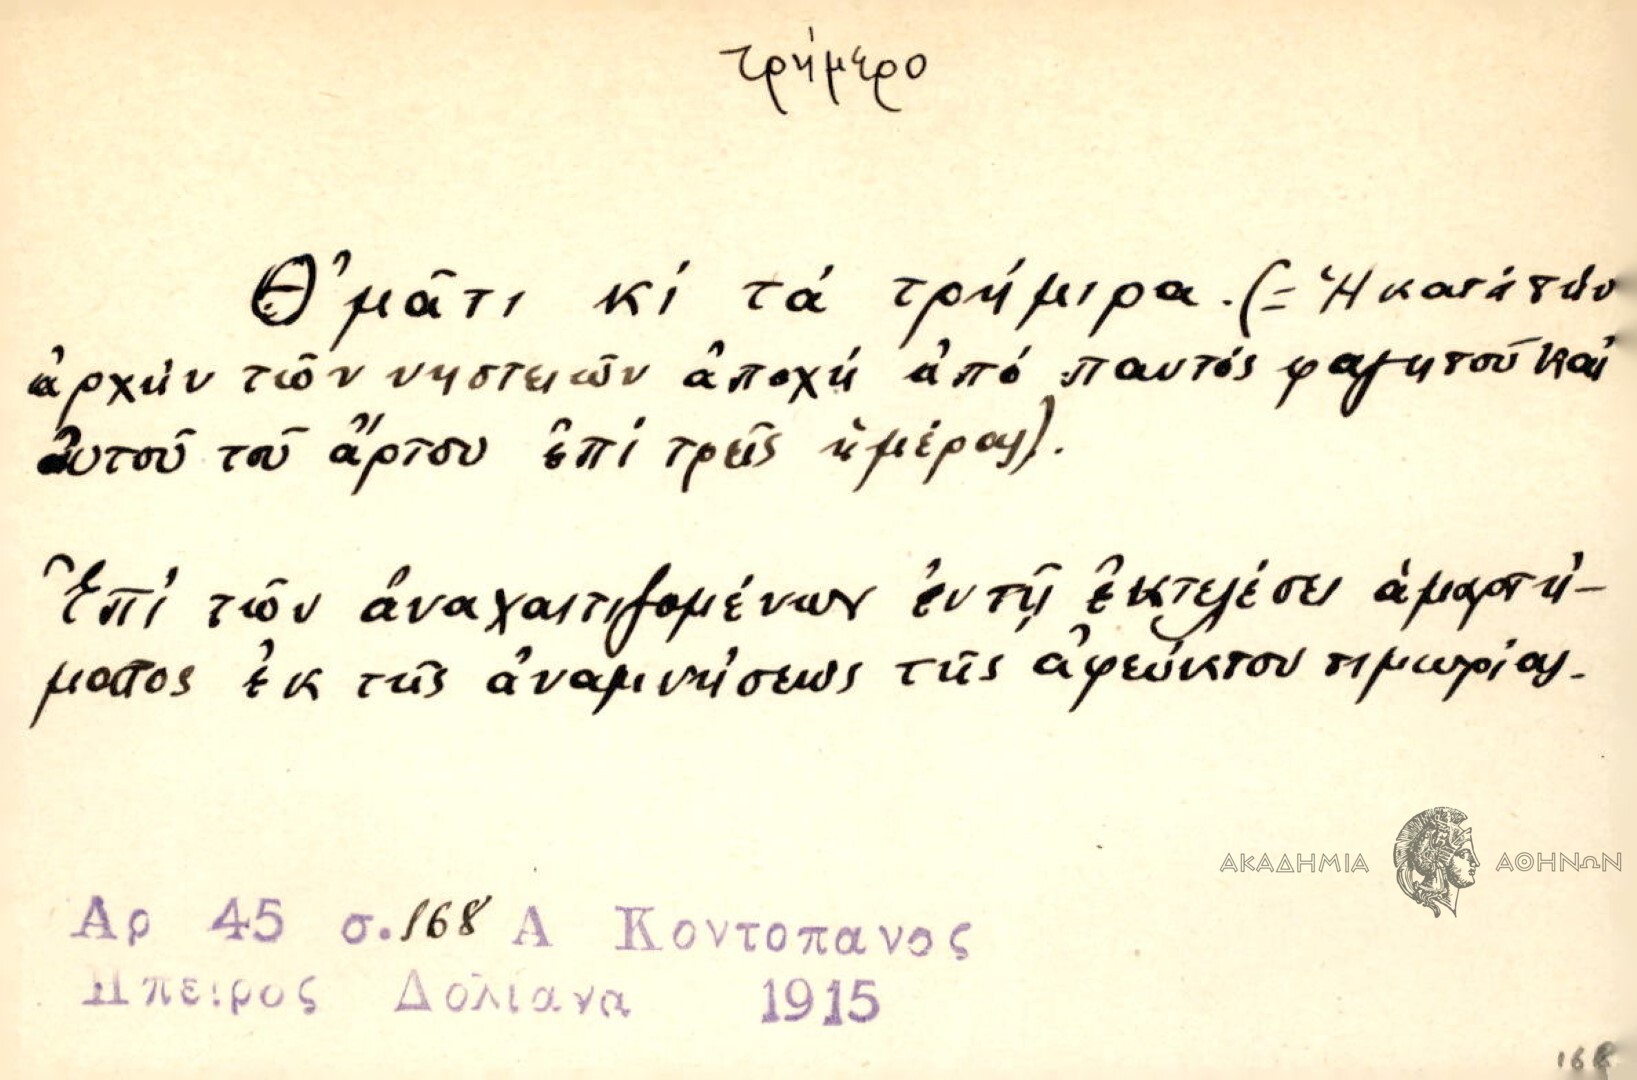 τρήμερο
Θ'μᾶτι κί τά τρήμιρα. (= Ἡ κατά τήν
ἀρχήν τῶν νηστειῶν ἀποχή ἀπό παντός φαγητοῦ καί
αὐτοῦ τοῦ ἄρτου ἐπί τρεῖς ἡμέρας).
Ἐπί τῶν ἀναχαιτιζομένων ἐν τῇ ἐκτελέσει ἁμαρτή-
ματος ἐκ τῆς ἀναμνήσεως τῆς ἀφεύκτου τιμωρίας.
ΑΚΑΔΗΜΙΑ ΑΘΗΝΩΝ
Αρ 45 σ. 168 Α Κοντοπανος
Ηπειρος Δολιανα 1915
168